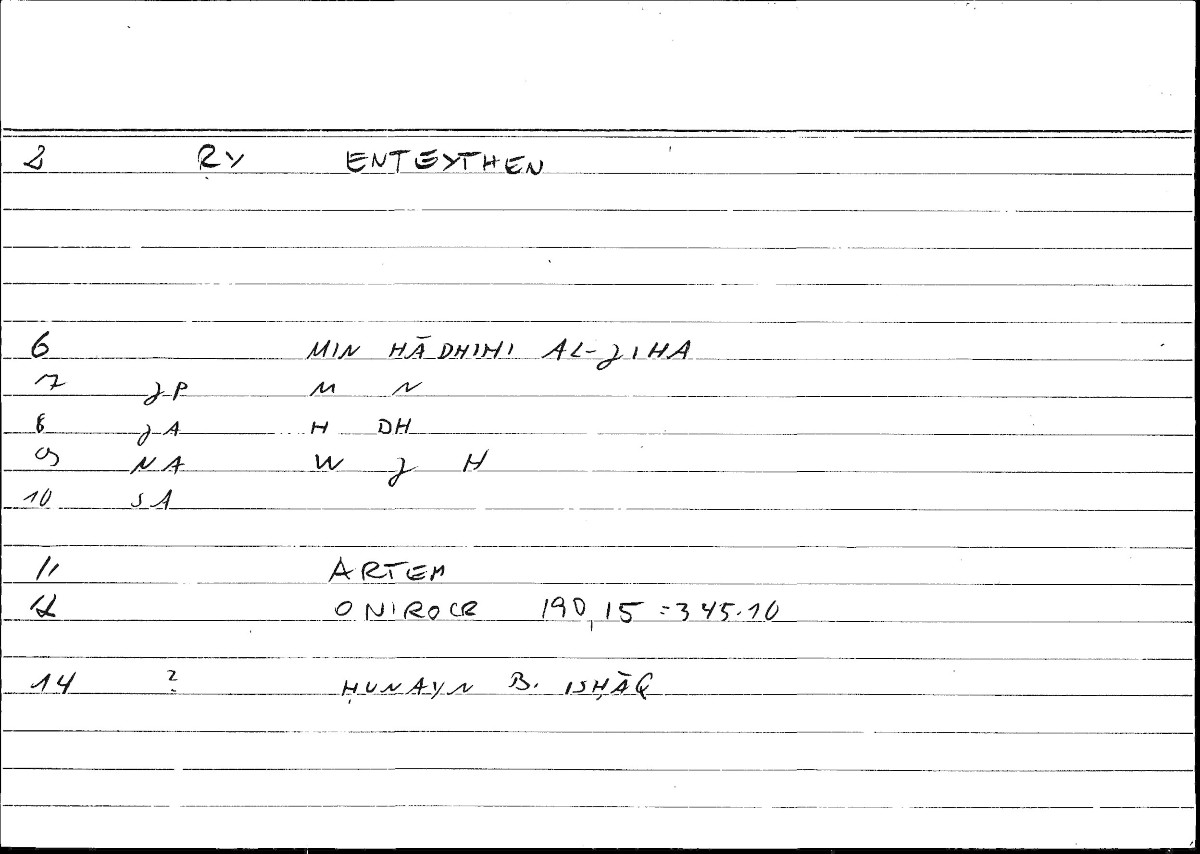 2 RY ENTEYTHEN
6 MIN HĀDHIHI AL-JIHA
7 JP M N
8 JA H DH
9 NA W J H
10 SA
11 ARTEM
12 ONIROCR 190,15 =345.10
14 ? ḤUNAYN B. ISḤĀQ